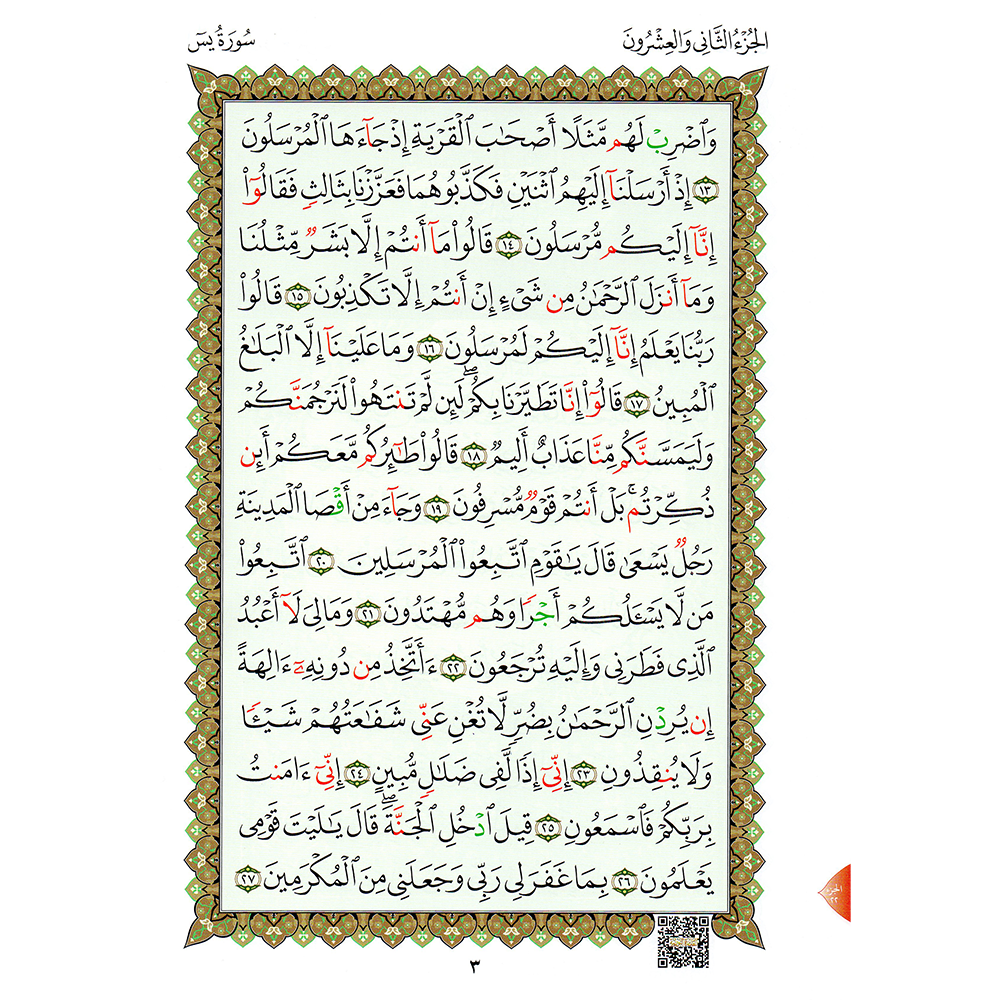 الجُزْءُ الثَّانِي وَالعِشْرُونَ
سُورَةُ يسٓ
وَٱضْرِبْ لَهُم مَّثَلًا أَصْحَٰبَ ٱلْقَرْيَةِ إِذْ جَآءَهَا ٱلْمُرْسَلُونَ
١٣ إِذْ أَرْسَلْنَآ إِلَيْهِمُ ٱثْنَيْنِ فَكَذَّبُوهُمَا فَعَزَّزْنَا بِثَالِثٍ فَقَالُوٓا۟
إِنَّآ إِلَيْكُم مُّرْسَلُونَ ١٤ قَالُوا۟ مَآ أَنتُمْ إِلَّا بَشَرٌ مِّثْلُنَا
وَمَآ أَنزَلَ ٱلرَّحْمَٰنُ مِن شَىْءٍ إِنْ أَنتُمْ إِلَّا تَكْذِبُونَ ١٥ قَالُوا۟
رَبُّنَا يَعْلَمُ إِنَّآ إِلَيْكُمْ لَمُرْسَلُونَ ١٦ وَمَا عَلَيْنَآ إِلَّا ٱلْبَلَٰغُ
ٱلْمُبِينُ ١٧ قَالُوٓا۟ إِنَّا تَطَيَّرْنَا بِكُمْ ۖ لَئِن لَّمْ تَنتَهُوا۟ لَنَرْجُمَنَّكُمْ
وَلَيَمَسَّنَّكُم مِّنَّا عَذَابٌ أَلِيمٌ ١٨ قَالُوا۟ طَٰٓئِرُكُم مَّعَكُمْ أَئِن
ذُكِّرْتُم ۚ بَلْ أَنتُمْ قَوْمٌ مُّسْرِفُونَ ١٩ وَجَآءَ مِنْ أَقْصَا ٱلْمَدِينَةِ
رَجُلٌ يَسْعَىٰ قَالَ يَٰقَوْمِ ٱتَّبِعُوا۟ ٱلْمُرْسَلِينَ ٢٠ ٱتَّبِعُوا۟
مَن لَّا يَسْـَٔلُكُمْ أَجْرًا وَهُم مُّهْتَدُونَ ٢١ وَمَا لِىَ لَآ أَعْبُدُ
ٱلَّذِى فَطَرَنِى وَإِلَيْهِ تُرْجَعُونَ ٢٢ ءَأَتَّخِذُ مِن دُونِهِۦٓ ءَالِهَةً
إِن يُرِدْنِ ٱلرَّحْمَٰنُ بِضُرٍّ لَّا تُغْنِ عَنِّى شَفَٰعَتُهُمْ شَيْـًٔا
وَلَا يُنقِذُونِ ٢٣ إِنِّىٓ إِذًا لَّفِى ضَلَٰلٍ مُّبِينٍ ٢٤ إِنِّىٓ ءَامَنتُ
بِرَبِّكُمْ فَٱسْمَعُونِ ٢٥ قِيلَ ٱدْخُلِ ٱلْجَنَّةَ ۖ قَالَ يَٰلَيْتَ قَوْمِى
يَعْلَمُونَ ٢٦ بِمَا غَفَرَ لِى رَبِّى وَجَعَلَنِى مِنَ ٱلْمُكْرَمِينَ ٢٧
الجزء
٢٢
٣